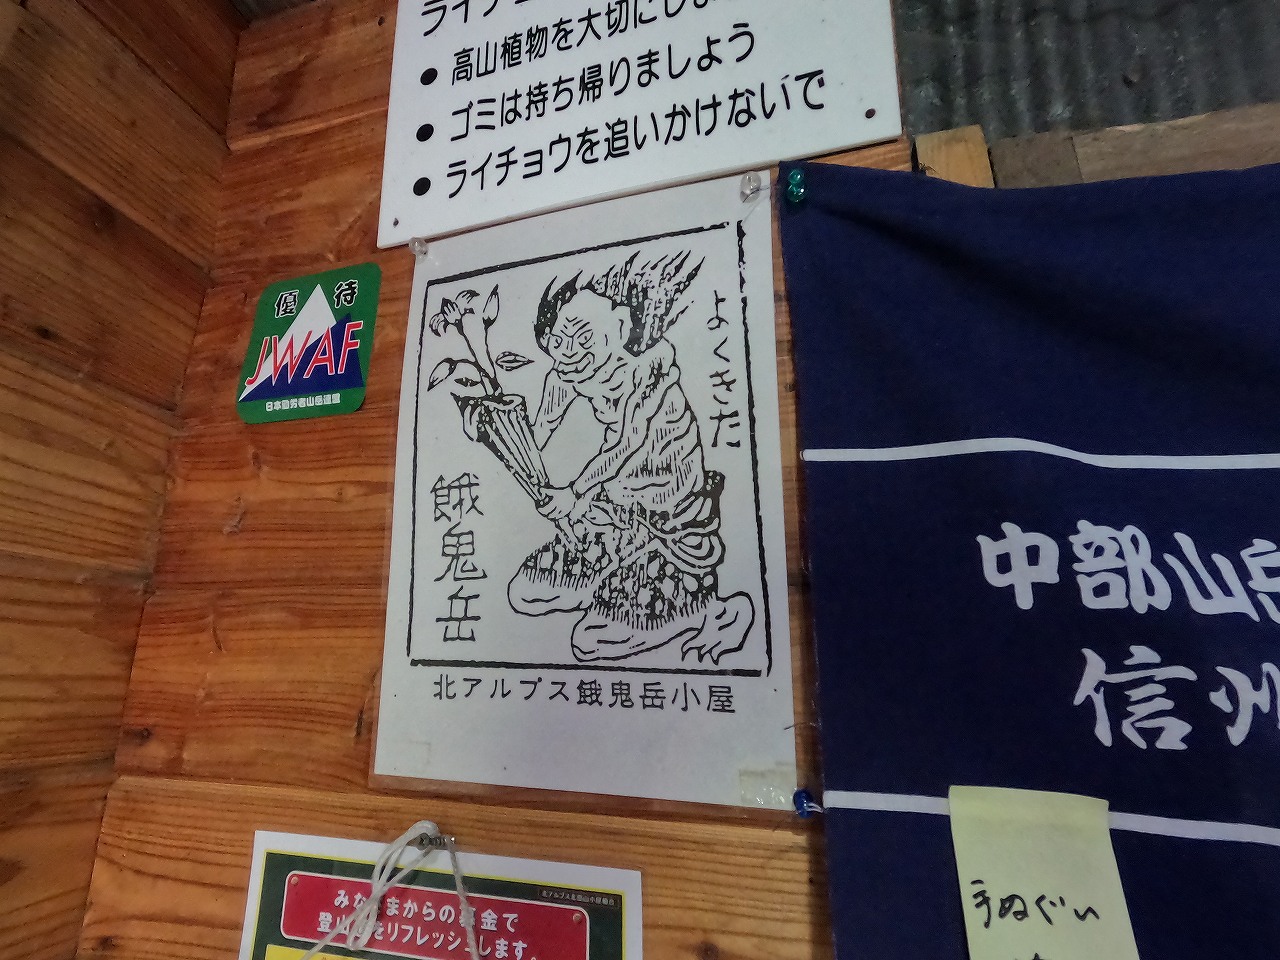 ライチョ
● 高山植物を大切にしま
● ゴミは持ち帰りましよう
● ライチョウを追いかけないで
優待
JWAF
日本勤労者山岳連盟
よくきた
餓鬼岳
北アルプス餓鬼岳小屋
中部山岳
信州
手ぬぐい
みな まからの募金で
登山 をリフレッシュします。